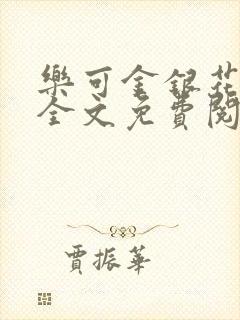 樂可金銀花
全文免費閱
賈振華